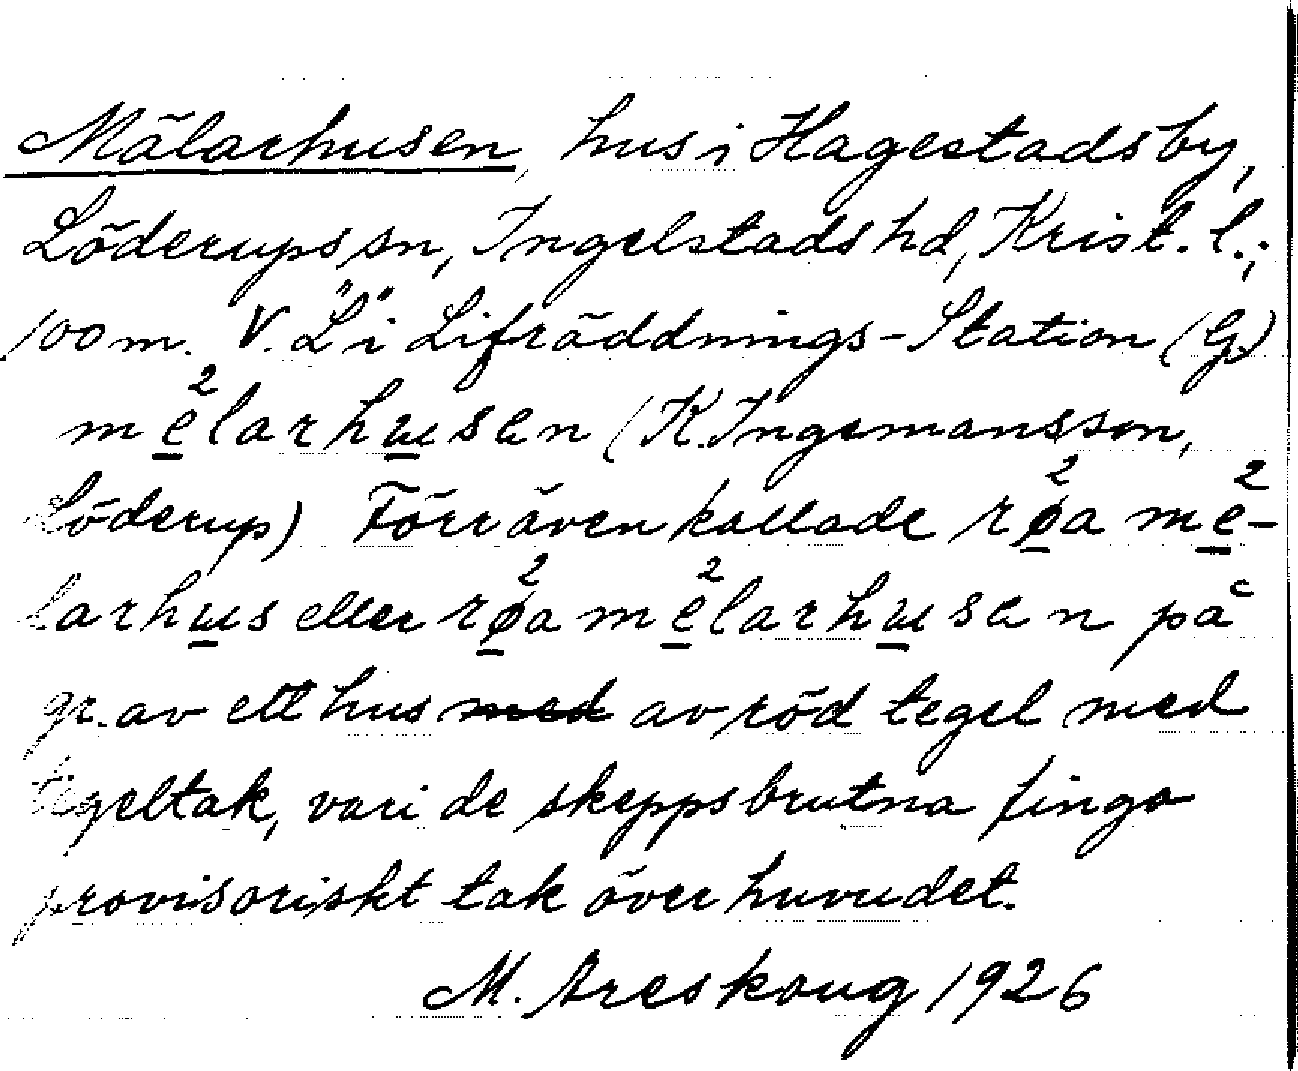 Mälarhusen, hus i Hagestads by,
Löderups sn, Ingelstads hd, Krist. l.;
100 m. V. "L" i Lifräddnings-Station (G)
me̲²larhu̲sen (K. Ingemansson,
Löderup) Förr även kallade rø̲²a me̲²-
larhu̲s eller rø̲²a me̲²larhu̲sen på
gr. av ett hus ~~med~~ av röd tegel med
tegeltak, vari de skeppsbrutna fingo
provisoriskt tak över huvudet.
M. Areskoug 1926